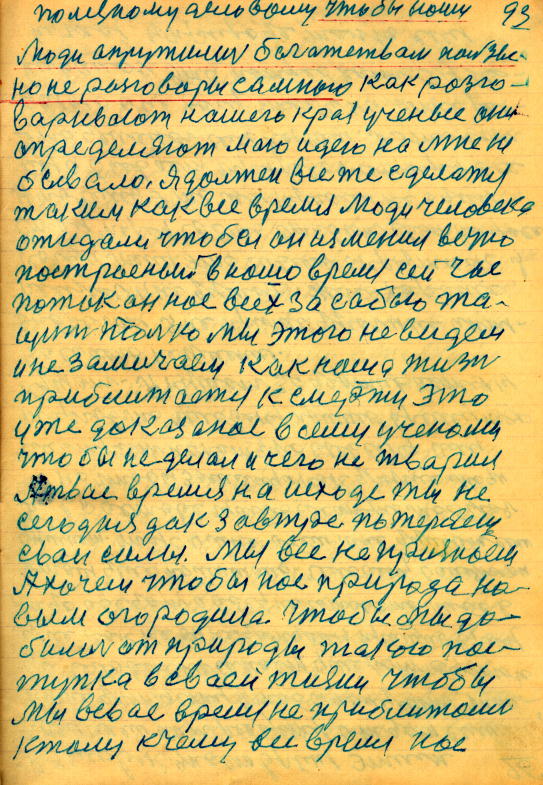 полезному деловому чтобы наши 93
люди окружили богатством
но не разговоры самного как разго-
варивают нашего края ученые они
определяют маю идею на мне не
бывало. Я должен все же сделатя
таким как все время люди человека
ожидали чтобы он изменил вечно
построеный в нашо время сей час
поток он нас всех за сабою та-
щит только мы этого не видем
и не замичаем как наша жизн
приближается к смерти Это
уже доказаное всеми учеными
чтобы не делал и чего не тварил
А твае время на исходе ты не
сегодня дак завтре потеряеш
сваи силы. Мы все не признаем
А хочем чтобы нас природа но-
вым огородила. Чтобы мы до-
билис от природы такого пос-
тупка в сваей жизни чтобы
мы всвае время не приближалис
к тому к чему все время нас